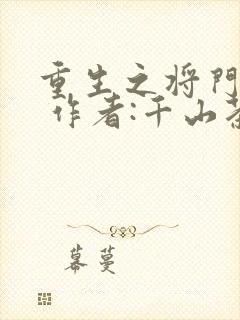 重生之将門
作者:千山茶
幕蔓